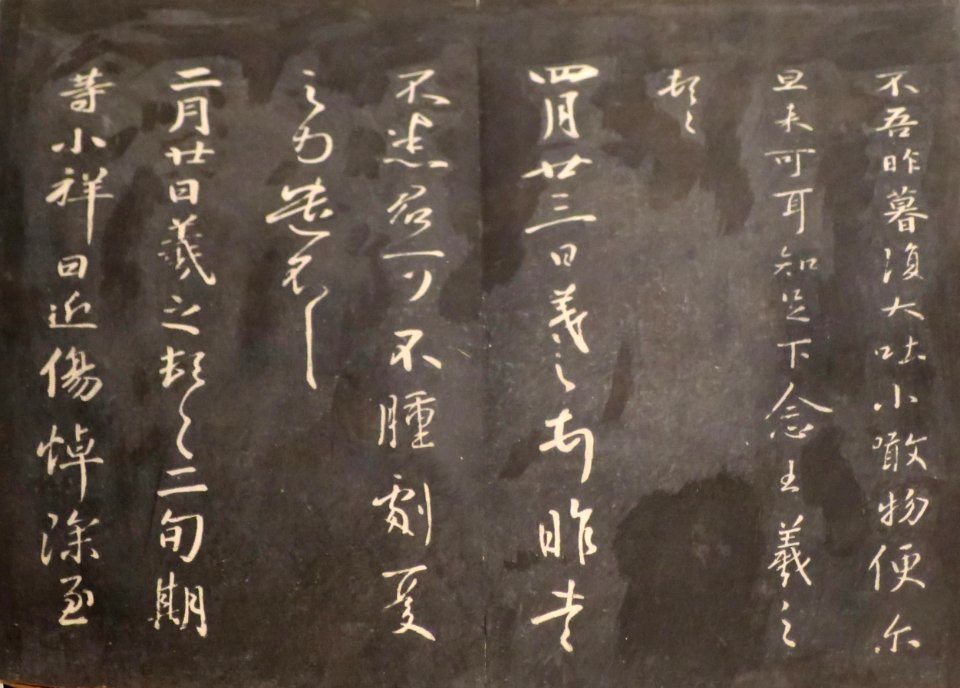 不吾昨暮復大吐小噉物便尔
旦来可耳知足下念王羲之
頓〻
四月廿三日羲之頓昨書
不悉君可不腫劇憂
之力遣不一
二月廿日羲之頓〻二旬期
等小祥日近傷悼深至